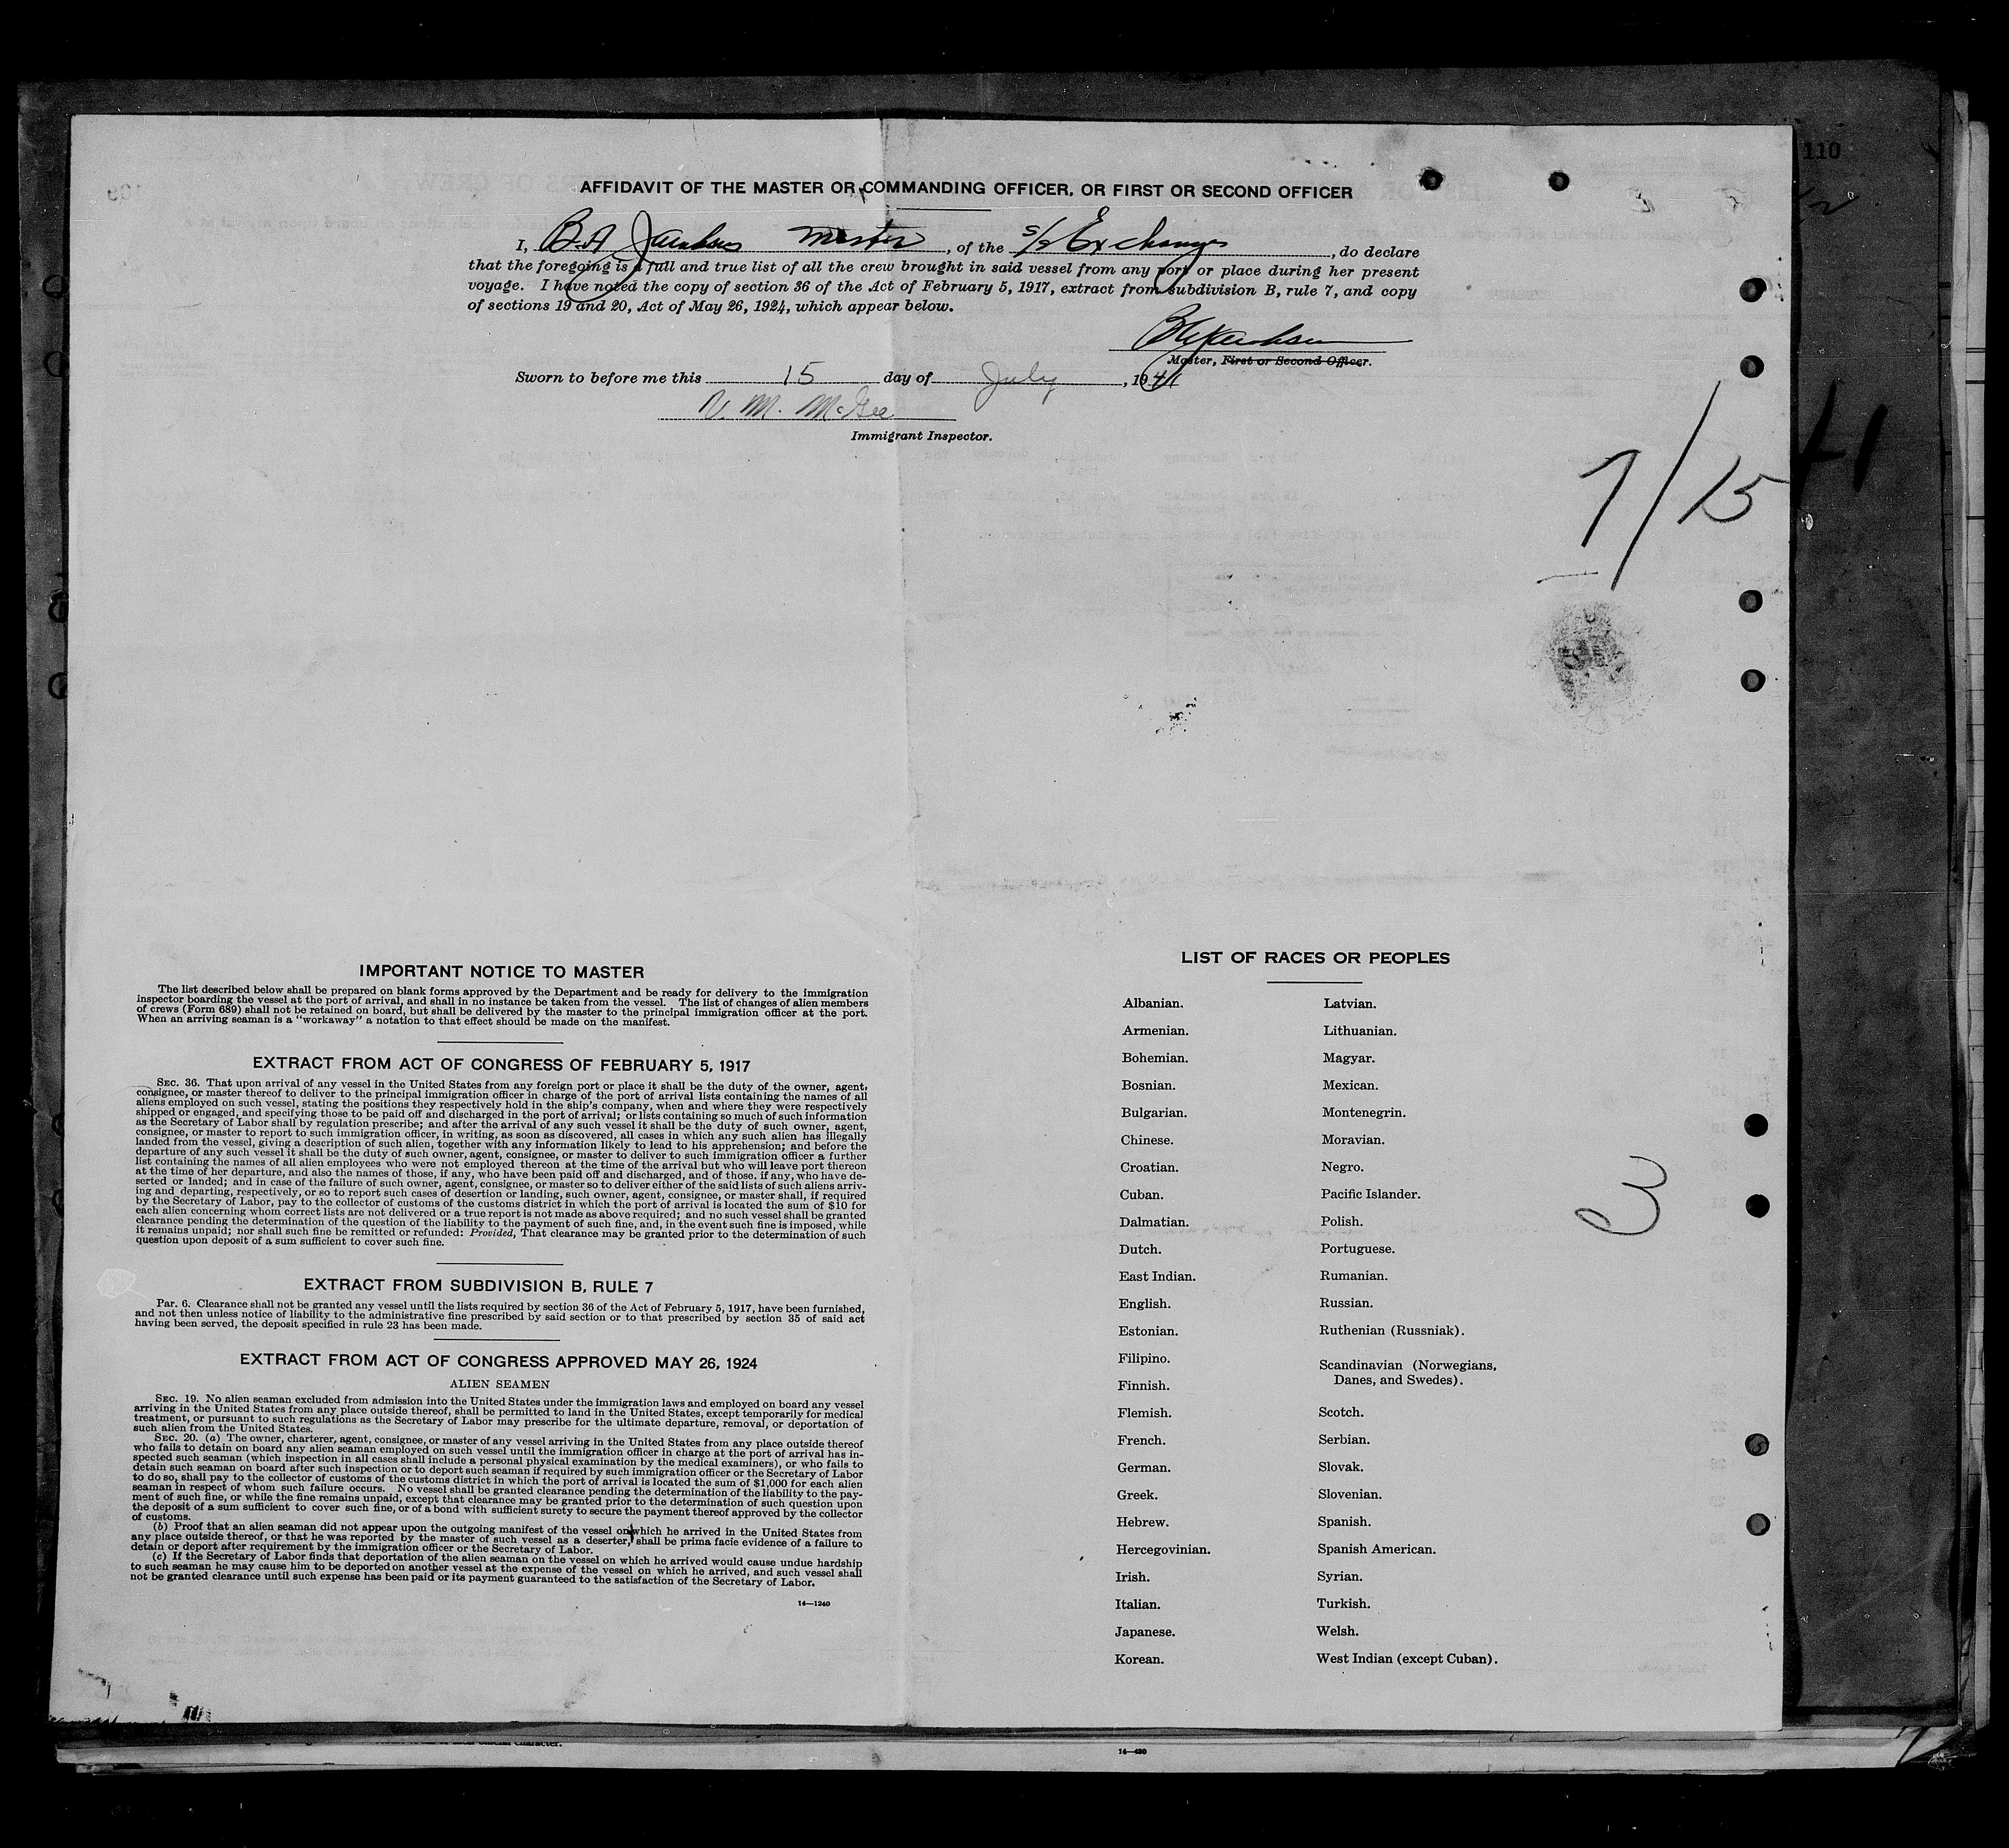 110
AFFIDAVIT OF THE MASTER OR COMMANDING OFFICER, OR FIRST OR SECOND OFFICER
I, B.A. Jacobsen Master, of the S/S Exchange, do declare
that the foregoing is a full and true list of all the crew brought in said vessel from any port or place during her present
voyage. I have noted the copy of section 36 of the Act of February 5, 1917, extract from subdivision B, rule 7, and copy
of sections 19 and 20, Act of May 26, 1924, which appear below.
Master, First or Second Officer.
Sworn to before me this 15 day of July, 1941
V. M. McGee
Immigrant Inspector.
7/15
41
IMPORTANT NOTICE TO MASTER
The list described below shall be prepared on blank forms approved by the Department and be ready for delivery to the immigration
inspector boarding the vessel at the port of arrival, and shall in no instance be taken from the vessel. The list of changes of alien members
of crews (Form 689) shall not be retained on board, but shall be delivered by the master to the principal immigration officer at the port.
When an arriving seaman is a "workaway" a notation to that effect should be made on the manifest.
EXTRACT FROM ACT OF CONGRESS OF FEBRUARY 5, 1917
SEC. 36. That upon arrival of any vessel in the United States from any foreign port or place it shall be the duty of the owner, agent,
consignee, or master thereof to deliver to the principal immigration officer in charge of the port of arrival lists containing the names of all
aliens employed on such vessel, stating the positions they respectively hold in the ship's company, when and where they were respectively
shipped or engaged, and specifying those to be paid off and discharged in the port of arrival; or lists containing so much of such information
as the Secretary of Labor shall by regulation prescribe; and after the arrival of any such vessel it shall be the duty of such owner, agent,
consignee, or master to report to such immigration officer, in writing, as soon as discovered, all cases in which any such alien has illegally
landed from the vessel, giving a description of such alien, together with any information likely to lead to his apprehension; and before the
departure of any such vessel it shall be the duty of such owner, agent, consignee, or master to deliver to such immigration officer a further
list containing the names of all alien employees who were not employed thereon at the time of the arrival but who will leave port thereon
at the time of her departure, and also the names of those, if any, who have been paid off and discharged, and of those, if any, who have de-
serted or landed; and in case of the failure of such owner, agent, consignee, or master so to deliver either of the said lists of such aliens arriv-
ing and departing, respectively, or so to report such cases of desertion or landing, such owner, agent, consignee, or master shall, if required
by the Secretary of Labor, pay to the collector of customs of the customs district in which the port of arrival is located the sum of $10 for
each alien concerning whom correct lists are not delivered or a true report is not made as above required; and no such vessel shall be granted
clearance pending the determination of the question of the liability to the payment of such fine, and, in the event such fine is imposed, while
it remains unpaid; nor shall such fine be remitted or refunded: Provided, That clearance may be granted prior to the determination of such
question upon deposit of a sum sufficient to cover such fine.
EXTRACT FROM SUBDIVISION B, RULE 7
Par. 6. Clearance shall not be granted any vessel until the lists required by section 36 of the Act of February 5, 1917, have been furnished,
and not then unless notice of liability to the administrative fine prescribed by said section or to that prescribed by section 35 of said act
having been served, the deposit specified in rule 23 has been made.
EXTRACT FROM ACT OF CONGRESS APPROVED MAY 26, 1924
ALIEN SEAMEN
SEC. 19. No alien seaman excluded from admission into the United States under the immigration laws and employed on board any vessel
arriving in the United States from any place outside thereof, shall be permitted to land in the United States, except temporarily for medical
treatment, or pursuant to such regulations as the Secretary of Labor may prescribe for the ultimate departure, removal, or deportation of
such alien from the United States.
SEC. 20. (a) The owner, charterer, agent, consignee, or master of any vessel arriving in the United States from any place outside thereof
who fails to detain on board any alien seaman employed on such vessel until the immigration officer in charge at the port of arrival has in-
spected such seaman (which inspection in all cases shall include a personal physical examination by the medical examiners), or who fails to
detain such seaman on board after such inspection or to deport such seaman if required by such immigration officer or the Secretary of Labor
to do so, shall pay to the collector of customs of the customs district in which the port of arrival is located the sum of $1,000 for each alien
seaman in respect of whom such failure occurs. No vessel shall be granted clearance pending the determination of the liability to the pay-
ment of such fine, or while the fine remains unpaid, except that clearance may be granted prior to the determination of such question upon
the deposit of a sum sufficient to cover such fine, or of a bond with sufficient surety to secure the payment thereof approved by the collector
of customs.
(b) Proof that an alien seaman did not appear upon the outgoing manifest of the vessel on which he arrived in the United States from
any place outside thereof, or that he was reported by the master of such vessel as a deserter, shall be prima facie evidence of a failure to
detain or deport after requirement by the immigration officer or the Secretary of Labor.
(c) If the Secretary of Labor finds that deportation of the alien seaman on the vessel on which he arrived would cause undue hardship
to such seaman he may cause him to be deported on another vessel at the expense of the vessel on which he arrived, and such vessel shall
not be granted clearance until such expense has been paid or its payment guaranteed to the satisfaction of the Secretary of Labor.
14—1240
LIST OF RACES OR PEOPLES
Albanian.
Armenian.
Bohemian.
Bosnian.
Bulgarian.
Chinese.
Croatian.
Cuban.
Dalmatian.
Dutch.
East Indian.
English.
Estonian.
Filipino.
Finnish.
Flemish.
French.
German.
Greek.
Hebrew.
Hercegovinian.
Irish.
Italian.
Japanese.
Korean.
Latvian.
Lithuanian.
Magyar.
Mexican.
Montenegrin.
Moravian.
Negro.
Pacific Islander.
Polish.
Portuguese.
Rumanian.
Russian.
Ruthenian (Russniak).
Scandinavian (Norwegians,
Danes, and Swedes).
Scotch.
Serbian.
Slovak.
Slovenian.
Spanish.
Spanish American.
Syrian.
Turkish.
Welsh.
West Indian (except Cuban).